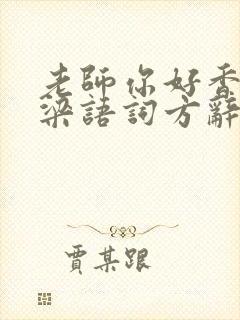 老師你好香
梁語詞方辭
賈某跟